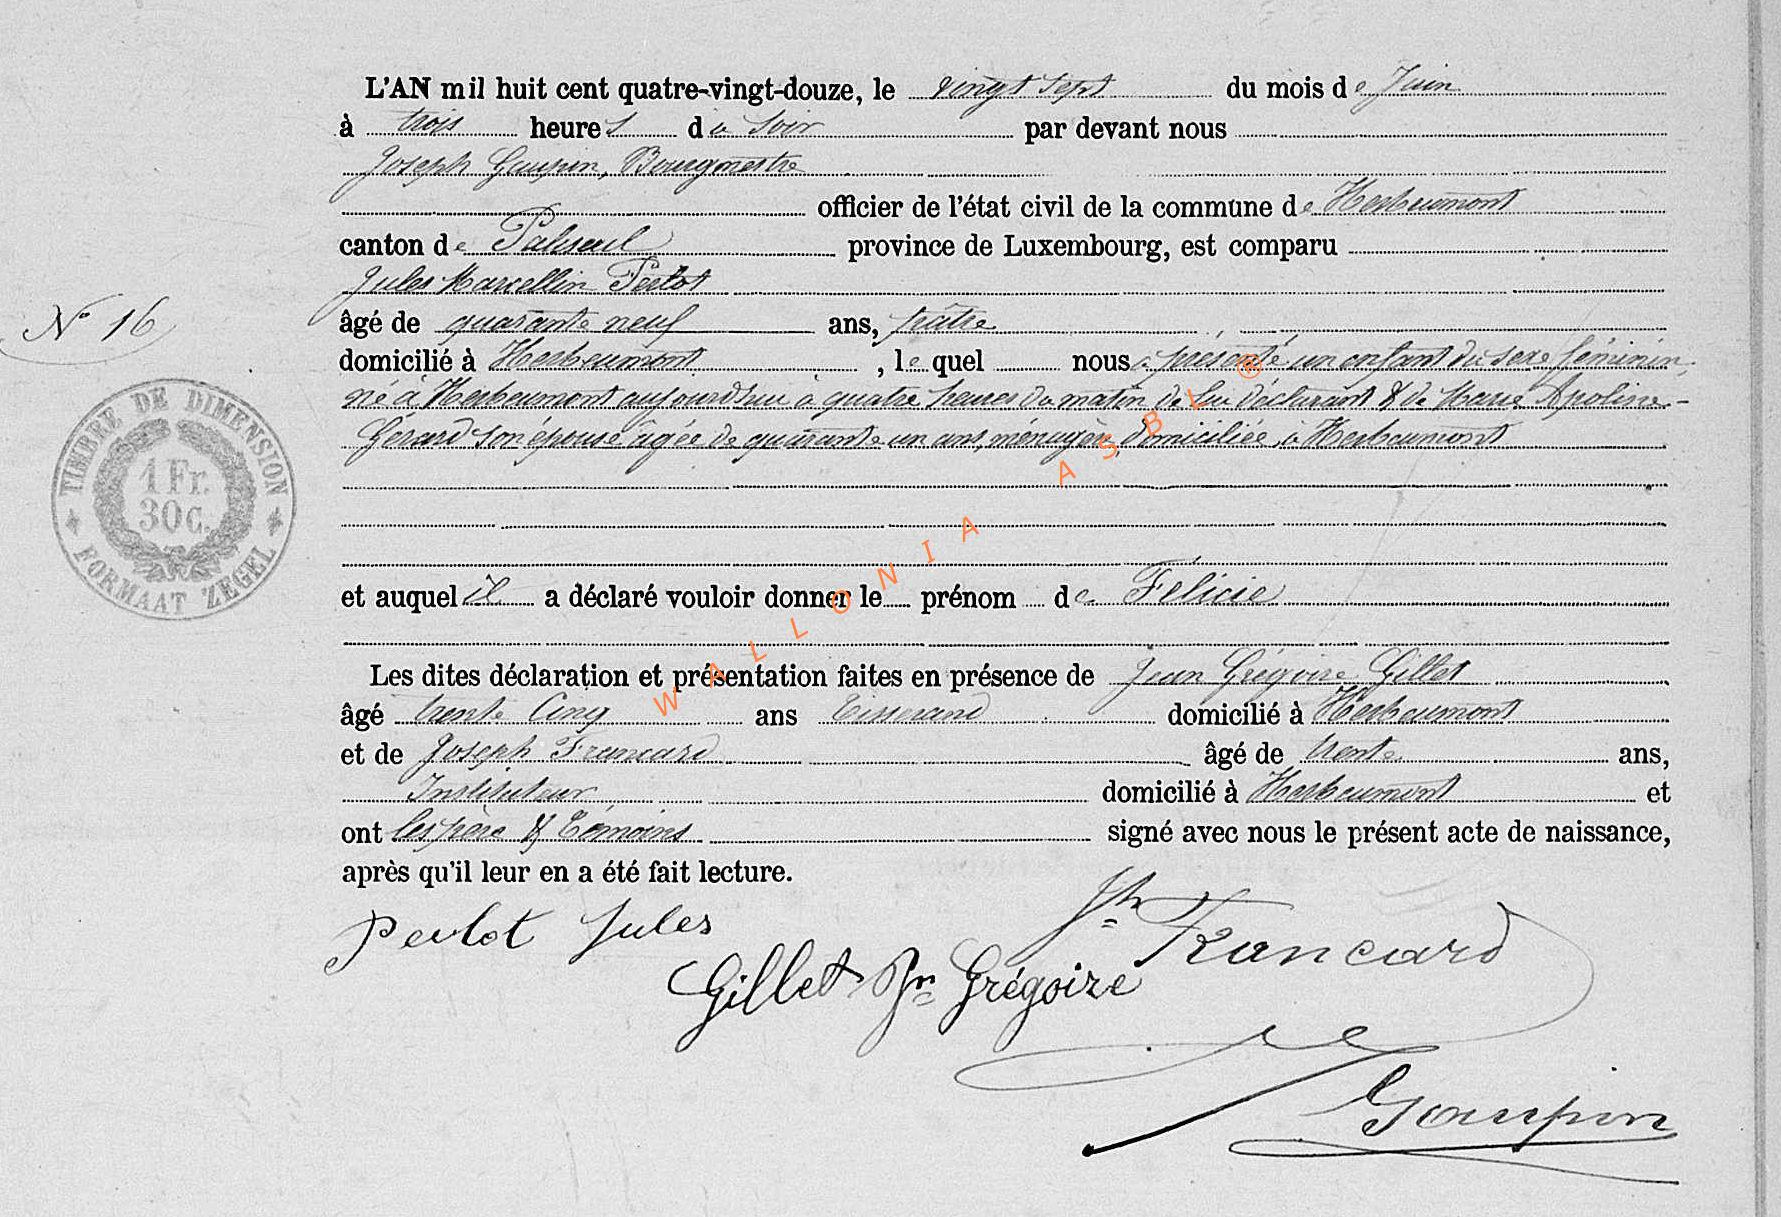 L'AN mil huit cent quatre-vingt-douze, le vingt sept du mois de Juin
à trois heures du soir par devant nous
Joseph Goupin, Bourgmestre
officier de l'état civil de la commune de Herbeumont
canton de Paliseul province de Luxembourg, est comparu
Jules Marcellin Perlot
N° 16
âgé de quarante neuf ans,
domicilié à Herbeumont, lequel nous a présenté un enfant du sexe féminin,
né à Herbeumont aujourd'hui à quatre heures du matin de lui déclarant & de Marie Apoline
Gérard son épouse âgée de quarante un ans, ménagère, domiciliée à Herbeumont
TIMBRE DE DIMENSION
1 Fr.
30 c.
FORMAAT ZEGEL
et auquel il a déclaré vouloir donner le prénom de Félicie
Les dites déclaration et présentation faites en présence de Jean Grégoire Gillet
âgé trente Cinq ans Tisserand domicilié à Herbeumont
et de Joseph Francard âgé de trente ans,
Instituteur domicilié à Herbeumont et
ont les père & Témoins signé avec nous le présent acte de naissance,
après qu'il leur en a été fait lecture.
Perlot Jules
Jh Francard
Gillet Jn Grégoire
Goupin
WALLONIA ASBL ®